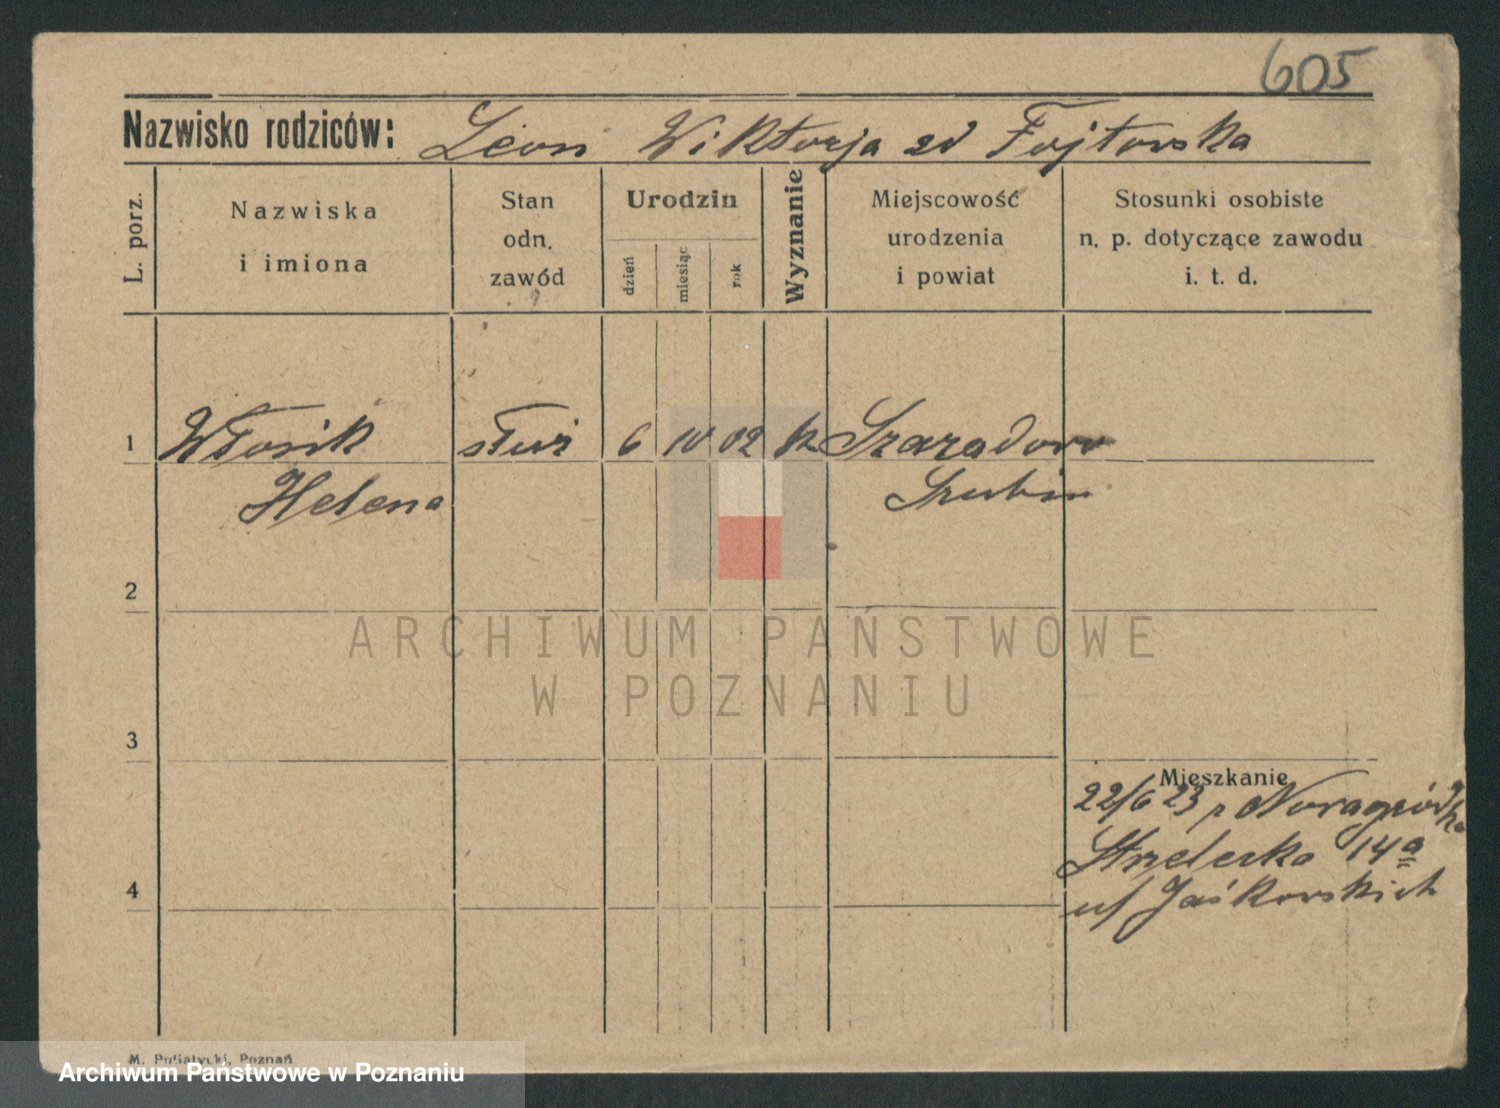 605
Nazwisko rodziców: Leon Wiktorja zd Fojtowska
L. porz.
Nazwiska
i imiona
Stan
odn.
zawód
Urodzin
dzień
miesiąc
rok
Wyznanie
Miejscowość
urodzenia
i powiat
Stosunki osobiste
n. p. dotyczące zawodu
i. t. d.
1 Włosik służ 6 IV 02 k Szaradowo
Helena Szubin
2
ARCHIWUM PAŃSTWOWE
W POZNANIU
3
Mieszkanie
22/6 23 z
Strzelecka 14a
u/ Jaśkowskich
4
M. Putiatycki, Poznań
Archiwum Państwowe w Poznaniu